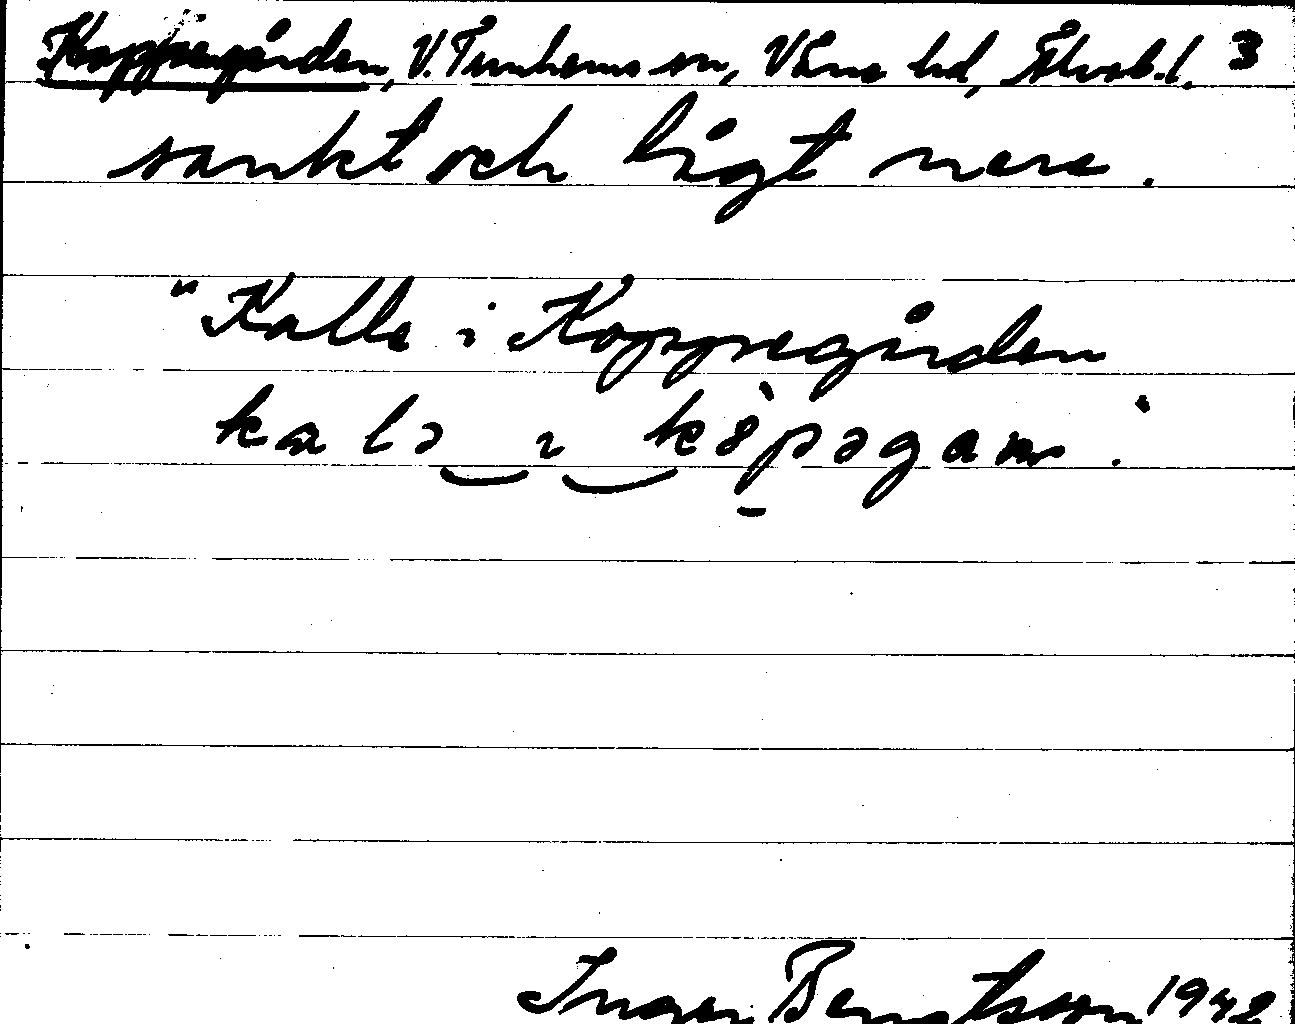 Koppegården, V. Tunhems sn, Väne hd, Älvsb.l. 3
sankt och lågt nere.
"Kalle i Koppegården
kalə i
Inger Bengtsson 1942